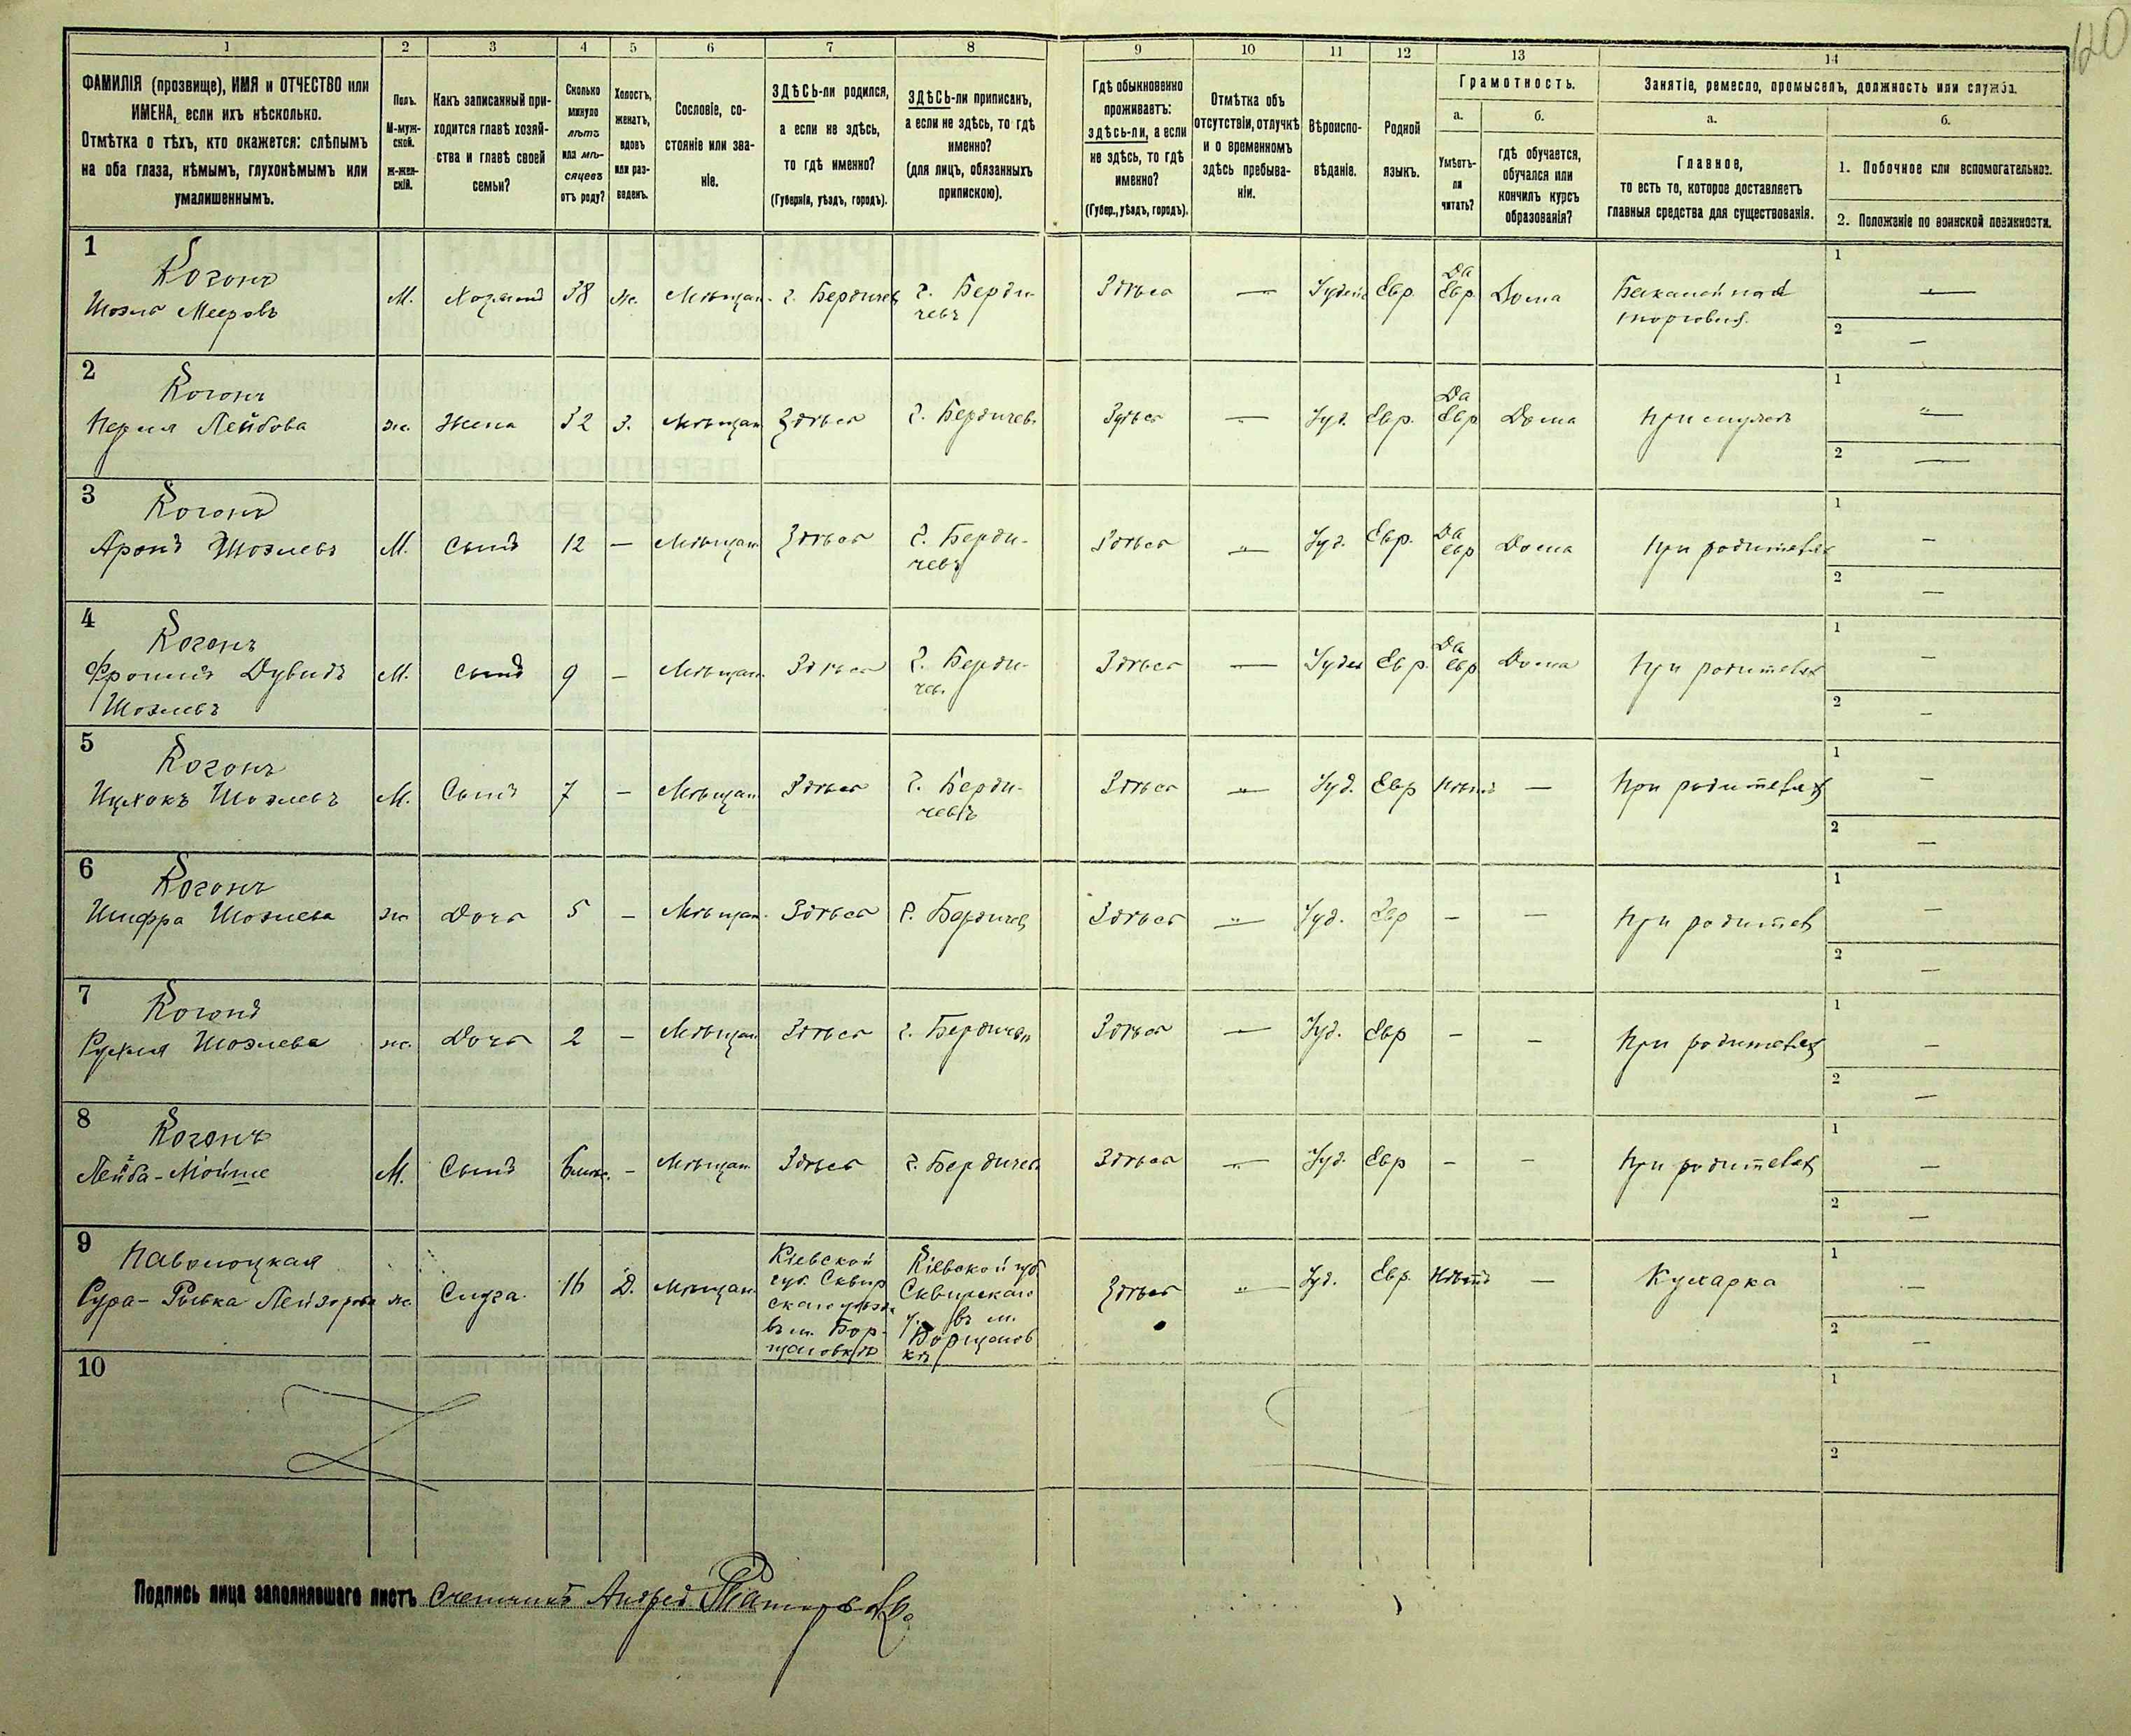 120
1 2 3 4 5 6 7 8 9 10 11 12 13 14
ФАМИЛІЯ (прозвище), ИМЯ и ОТЧЕСТВО или
ИМЕНА, если ихъ нѣсколько.
Отмѣтка о тѣхъ, кто окажется: слѣпымъ
на оба глаза, нѣмымъ, глухонѣмымъ или
умалишеннымъ.
Полъ.
М-муж-
ской.
Ж-жен-
скій.
Какъ записанный при-
ходится главѣ хозяй-
ства и главѣ своей
семьи?
Сколько
минуло
лѣтъ
или мѣ-
сяцевъ
отъ роду?
Холостъ,
женатъ,
вдовъ
или раз-
веденъ.
Сословіе, со-
стояніе или зва-
ніе.
ЗДѢСЬ-ли родился,
а если не здѣсь,
то гдѣ именно?
(Губернія, уѣздъ, городъ).
ЗДѢСЬ-ли приписанъ,
а если не здѣсь, то гдѣ
именно?
(для лицъ, обязанныхъ
припискою).
Гдѣ обыкновенно
проживаетъ:
здѣсь-ли, а если
не здѣсь, то гдѣ
именно?
(Губер., уѣздъ, городъ).
Отмѣтка объ
отсутствіи, отлучкѣ
и о временномъ
здѣсь пребыва-
ніи.
Вѣроиспо-
вѣданіе.
Родной
языкъ.
Грамотность.
а.
Умѣетъ-
ли
читать?
б.
гдѣ обучается,
обучался или
кончилъ курсъ
образованія?
Занятіе, ремесло, промыселъ, должность или служба.
а.
Главное,
то есть то, которое доставляетъ
главныя средства для существованія.
б.
1. Побочное или вспомогательное.
2. Положеніе по воинской повинности.
1
Когонъ
Мееровъ
М. 38 ж. Мѣщан. г. Бердичев г. Берди-
чевъ
Здѣсь — Іудей Евр. Да
Евр. Дома
1 —
2 —
2
Когонъ
Лейбова
ж. Жена 32 З. Мѣщан Здѣсь г. Бердичев.
Здѣсь — Іуд. Евр. Да
Евр Дома
1 —
2 —
3
Когонъ
Аронъ
М. Сынъ 12 — Мѣщан Здѣсь г. Берди-
чевъ
Здѣсь — Іуд. Евр. Да
Евр Дома При родителях
1 —
2 —
4
Когонъ
Дувидъ
М. Сынъ 9 — Мѣщан. Здѣсь г. Берди-
чев.
Здѣсь — Іудей Евр. Да
Евр Дома При родителях
1 —
2 —
5
Когонъ
М. Сынъ 7 — Мѣщан Здѣсь г. Берди-
чевъ
Здѣсь — Іуд. Евр Нѣтъ — При родителях
1 —
2 —
6
Когонъ
ж Дочь 5 — Мѣщан. Здѣсь г. Бердичев
Здѣсь — Іуд. Евр — — При родител
1 —
2 —
7
Когонъ
ж. Дочь 2 — Мѣщан Здѣсь г. Бердичев
Здѣсь — Іуд. Евр — — При родителях
1 —
2 —
8
Когонъ
Лейба-Мойше
М. Сынъ 6 мѣс. - Мѣщан Здѣсь г. Бердичев
Здѣсь — Іуд. Евр — — При родителях
1 —
2 —
9
Паволоцкая
Сура-Рывка Лейзорова ж. Слуга 16 Д. Мѣщан
Кіевской
губ. Сквир
скаго уѣзд.
въ м. Бор-
щаговкѣ
Кіевской губ.
Сквирскаго
у. въ м.
Борщагов
кѣ
Здѣсь — Іуд. Евр. Нѣтъ — Кухарка
1 —
2 —
10
1
2
Подпись лица заполнявшаго листъ счетчикъ Андрей